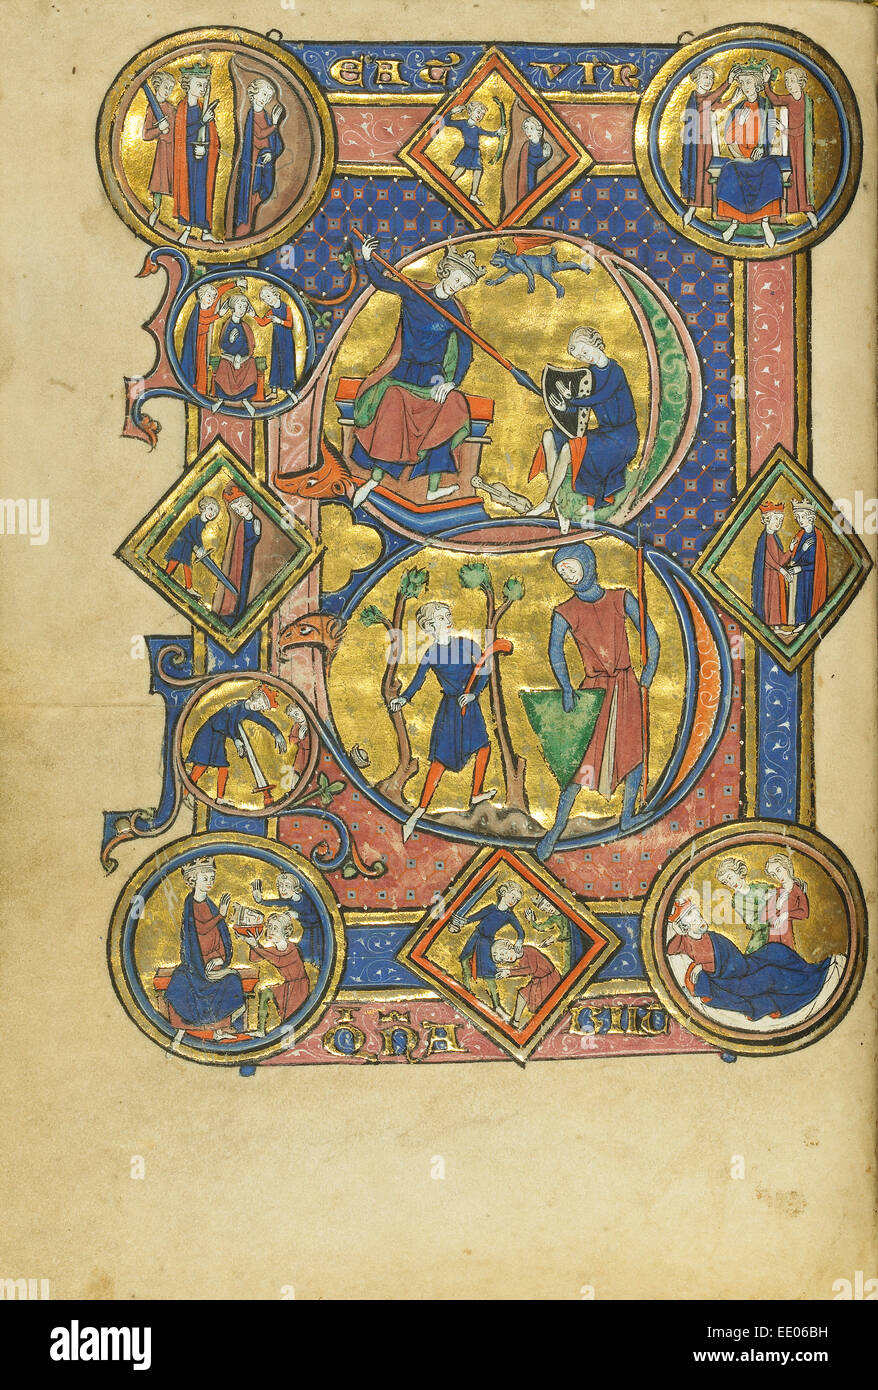 BEAT' VIR
Qͥ N̄ A BIIT
alamy
alamy
Image ID: EE06BH
www.alamy.com